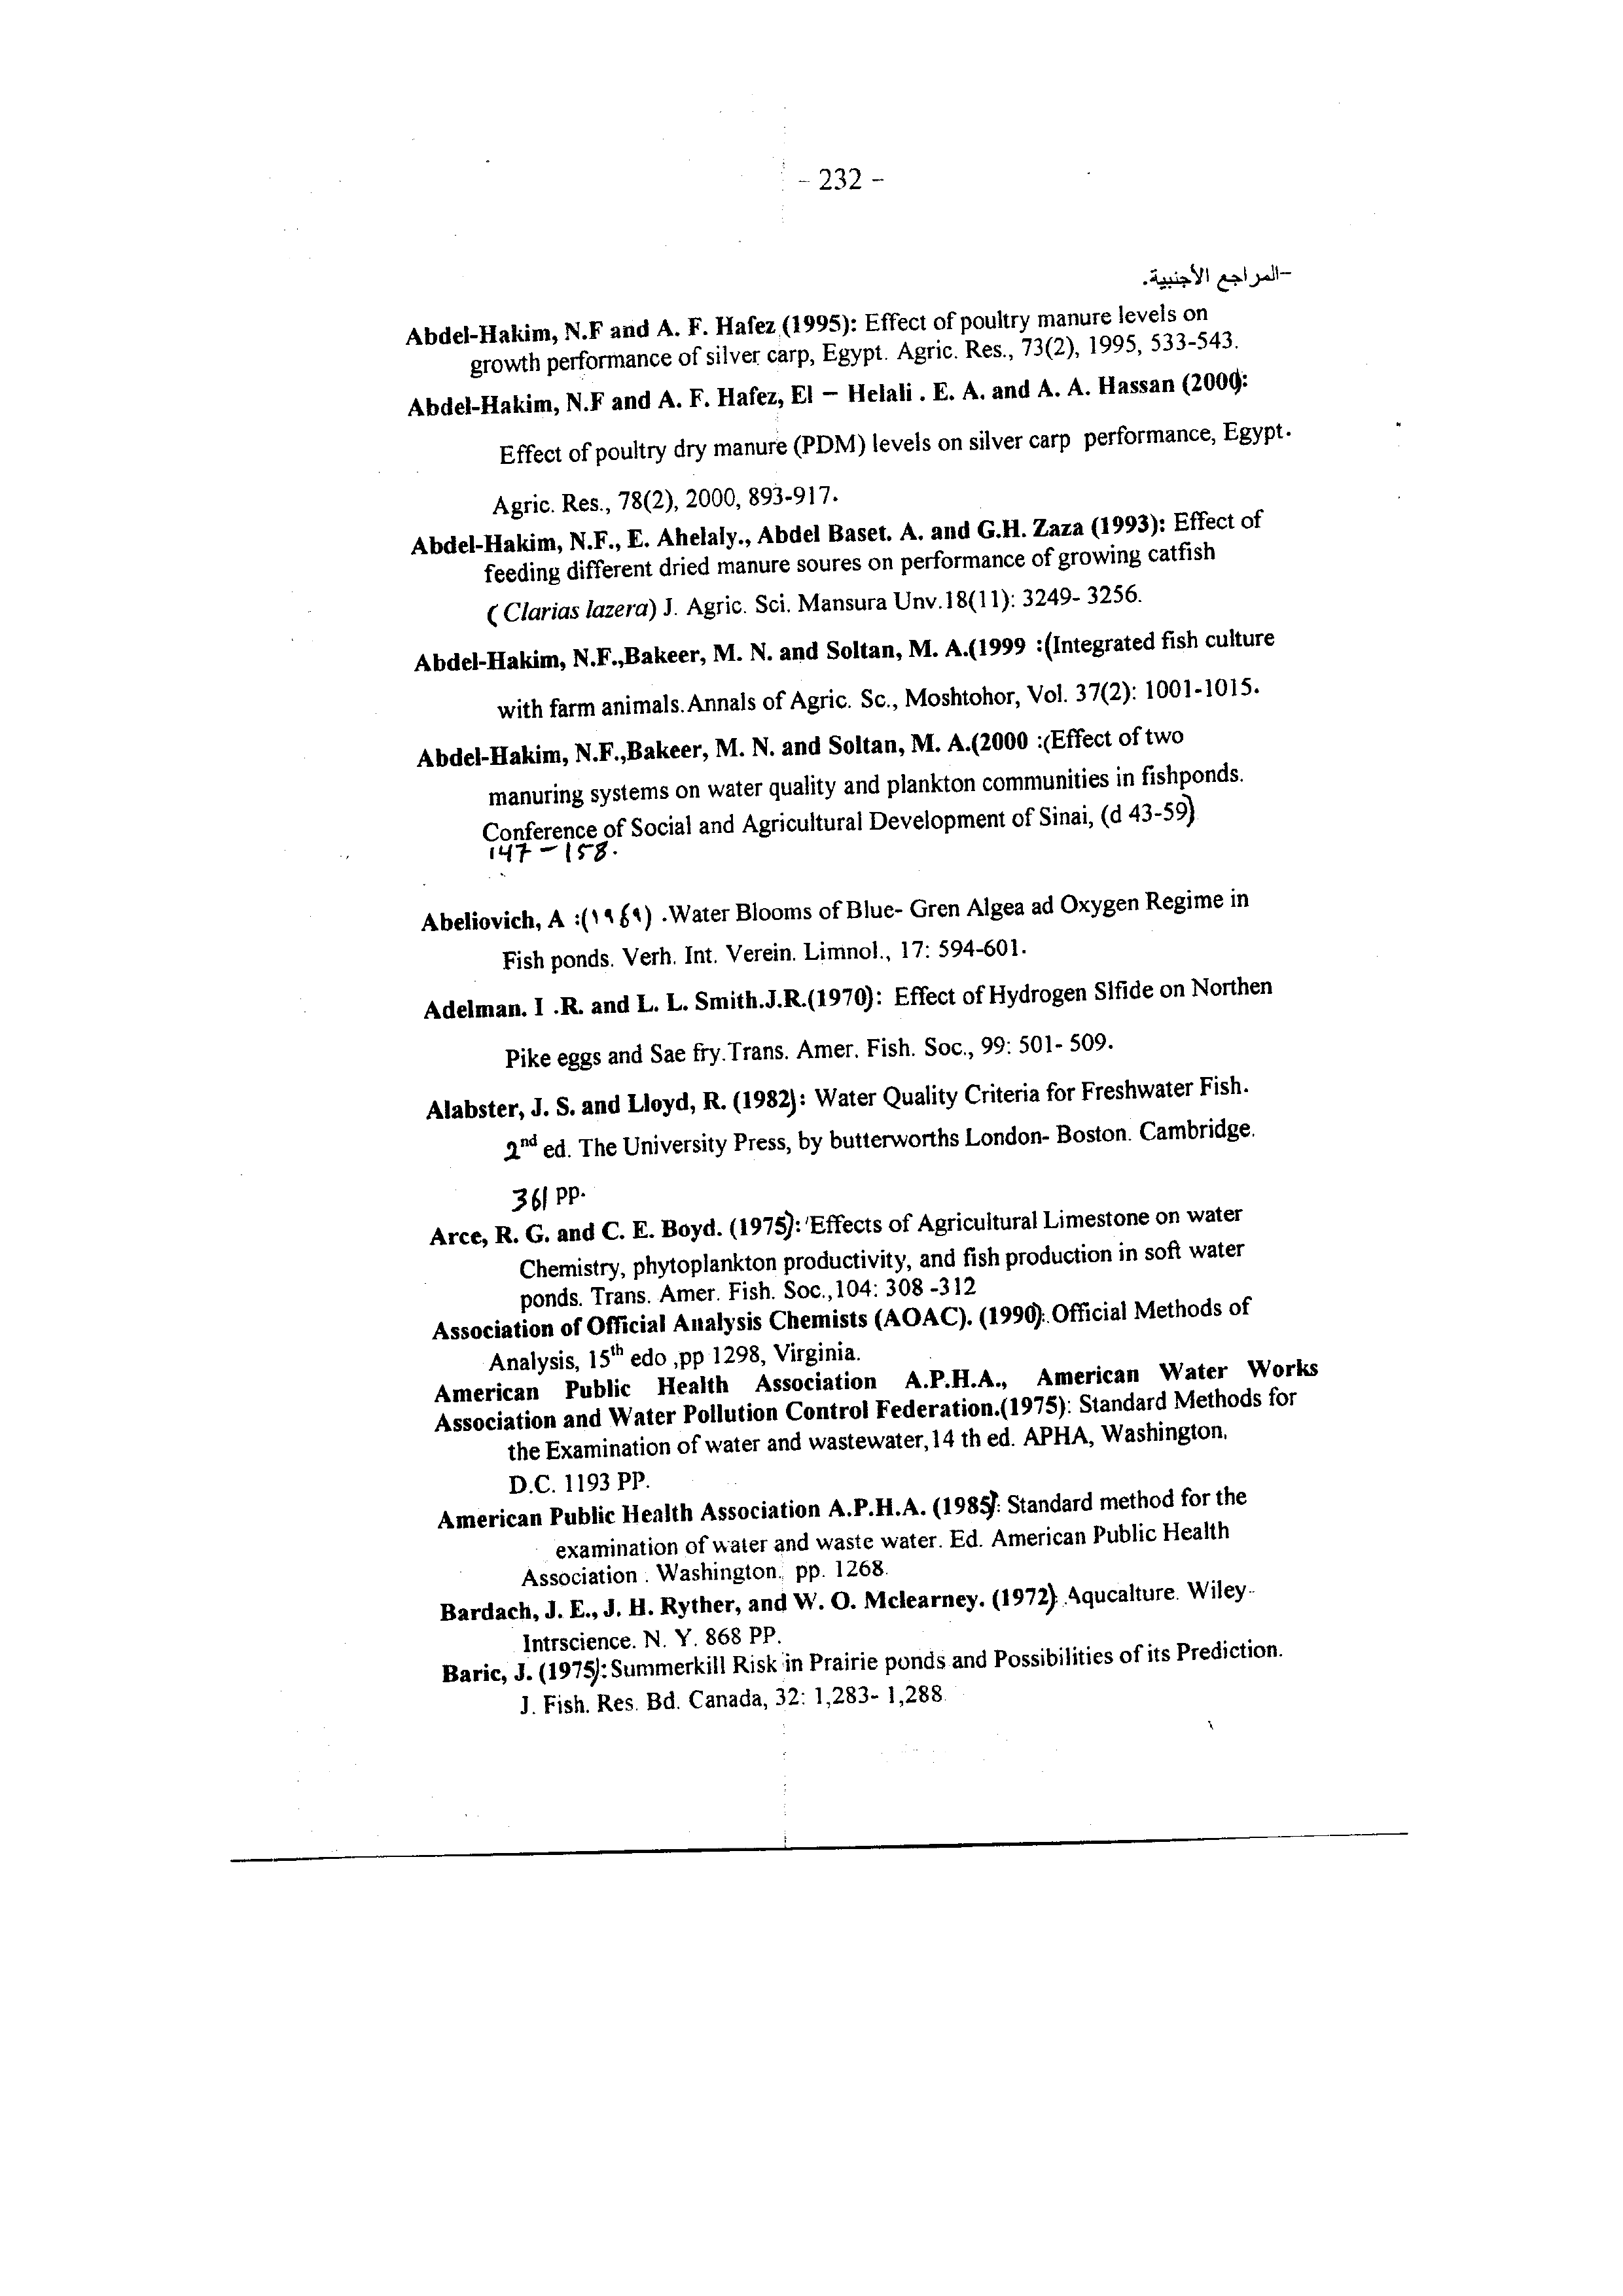 - 232 -
-المراجع الأجنبية.
Abdel-Hakim, N.F and A. F. Hafez (1995): Effect of poultry manure levels on
growth performance of silver carp, Egypt. Agric. Res., 73(2), 1995, 533-543.
Abdel-Hakim, N.F and A. F. Hafez, El – Helali . E. A. and A. A. Hassan (2000):
Effect of poultry dry manure (PDM) levels on silver carp performance, Egypt.
Agric. Res., 78(2), 2000, 893-917.
Abdel-Hakim, N.F., E. Ahelaly., Abdel Baset. A. and G.H. Zaza (1993): Effect of
feeding different dried manure soures on performance of growing catfish
( Clarias lazera) J. Agric. Sci. Mansura Unv.18(11): 3249- 3256.
Abdel-Hakim, N.F.,Bakeer, M. N. and Soltan, M. A.(1999 :(Integrated fish culture
with farm animals.Annals of Agric. Sc., Moshtohor, Vol. 37(2): 1001-1015.
Abdel-Hakim, N.F.,Bakeer, M. N. and Soltan, M. A.(2000 :(Effect of two
manuring systems on water quality and plankton communities in fishponds.
Conference of Social and Agricultural Development of Sinai, (d 43-59)
147 – 158.
Abeliovich, A :( ) .Water Blooms of Blue- Gren Algea ad Oxygen Regime in
Fish ponds. Verh. Int. Verein. Limnol., 17: 594-601.
Adelman. I .R. and L. L. Smith.J.R.(1970): Effect of Hydrogen Slfide on Northen
Pike eggs and Sae fry.Trans. Amer. Fish. Soc., 99: 501- 509.
Alabster, J. S. and Lloyd, R. (1982): Water Quality Criteria for Freshwater Fish.
2nd ed. The University Press, by butterworths London- Boston. Cambridge.
361 PP.
Arce, R. G. and C. E. Boyd. (1975): Effects of Agricultural Limestone on water
Chemistry, phytoplankton productivity, and fish production in soft water
ponds. Trans. Amer. Fish. Soc.,104: 308 -312
Association of Official Analysis Chemists (AOAC). (1990): Official Methods of
Analysis, 15th edo ,pp 1298, Virginia.
American Public Health Association A.P.H.A., American Water Works
Association and Water Pollution Control Federation.(1975): Standard Methods for
the Examination of water and wastewater,14 th ed. APHA, Washington,
D.C. 1193 PP.
American Public Health Association A.P.H.A. (1985): Standard method for the
examination of water and waste water. Ed. American Public Health
Association . Washington., pp. 1268.
Bardach, J. E., J. H. Ryther, and W. O. Mclearney. (1972): Aqucalture. Wiley-
Intrscience. N. Y. 868 PP.
Baric, J. (1975): Summerkill Risk in Prairie ponds and Possibilities of its Prediction.
J. Fish. Res. Bd. Canada, 32: 1,283- 1,288.